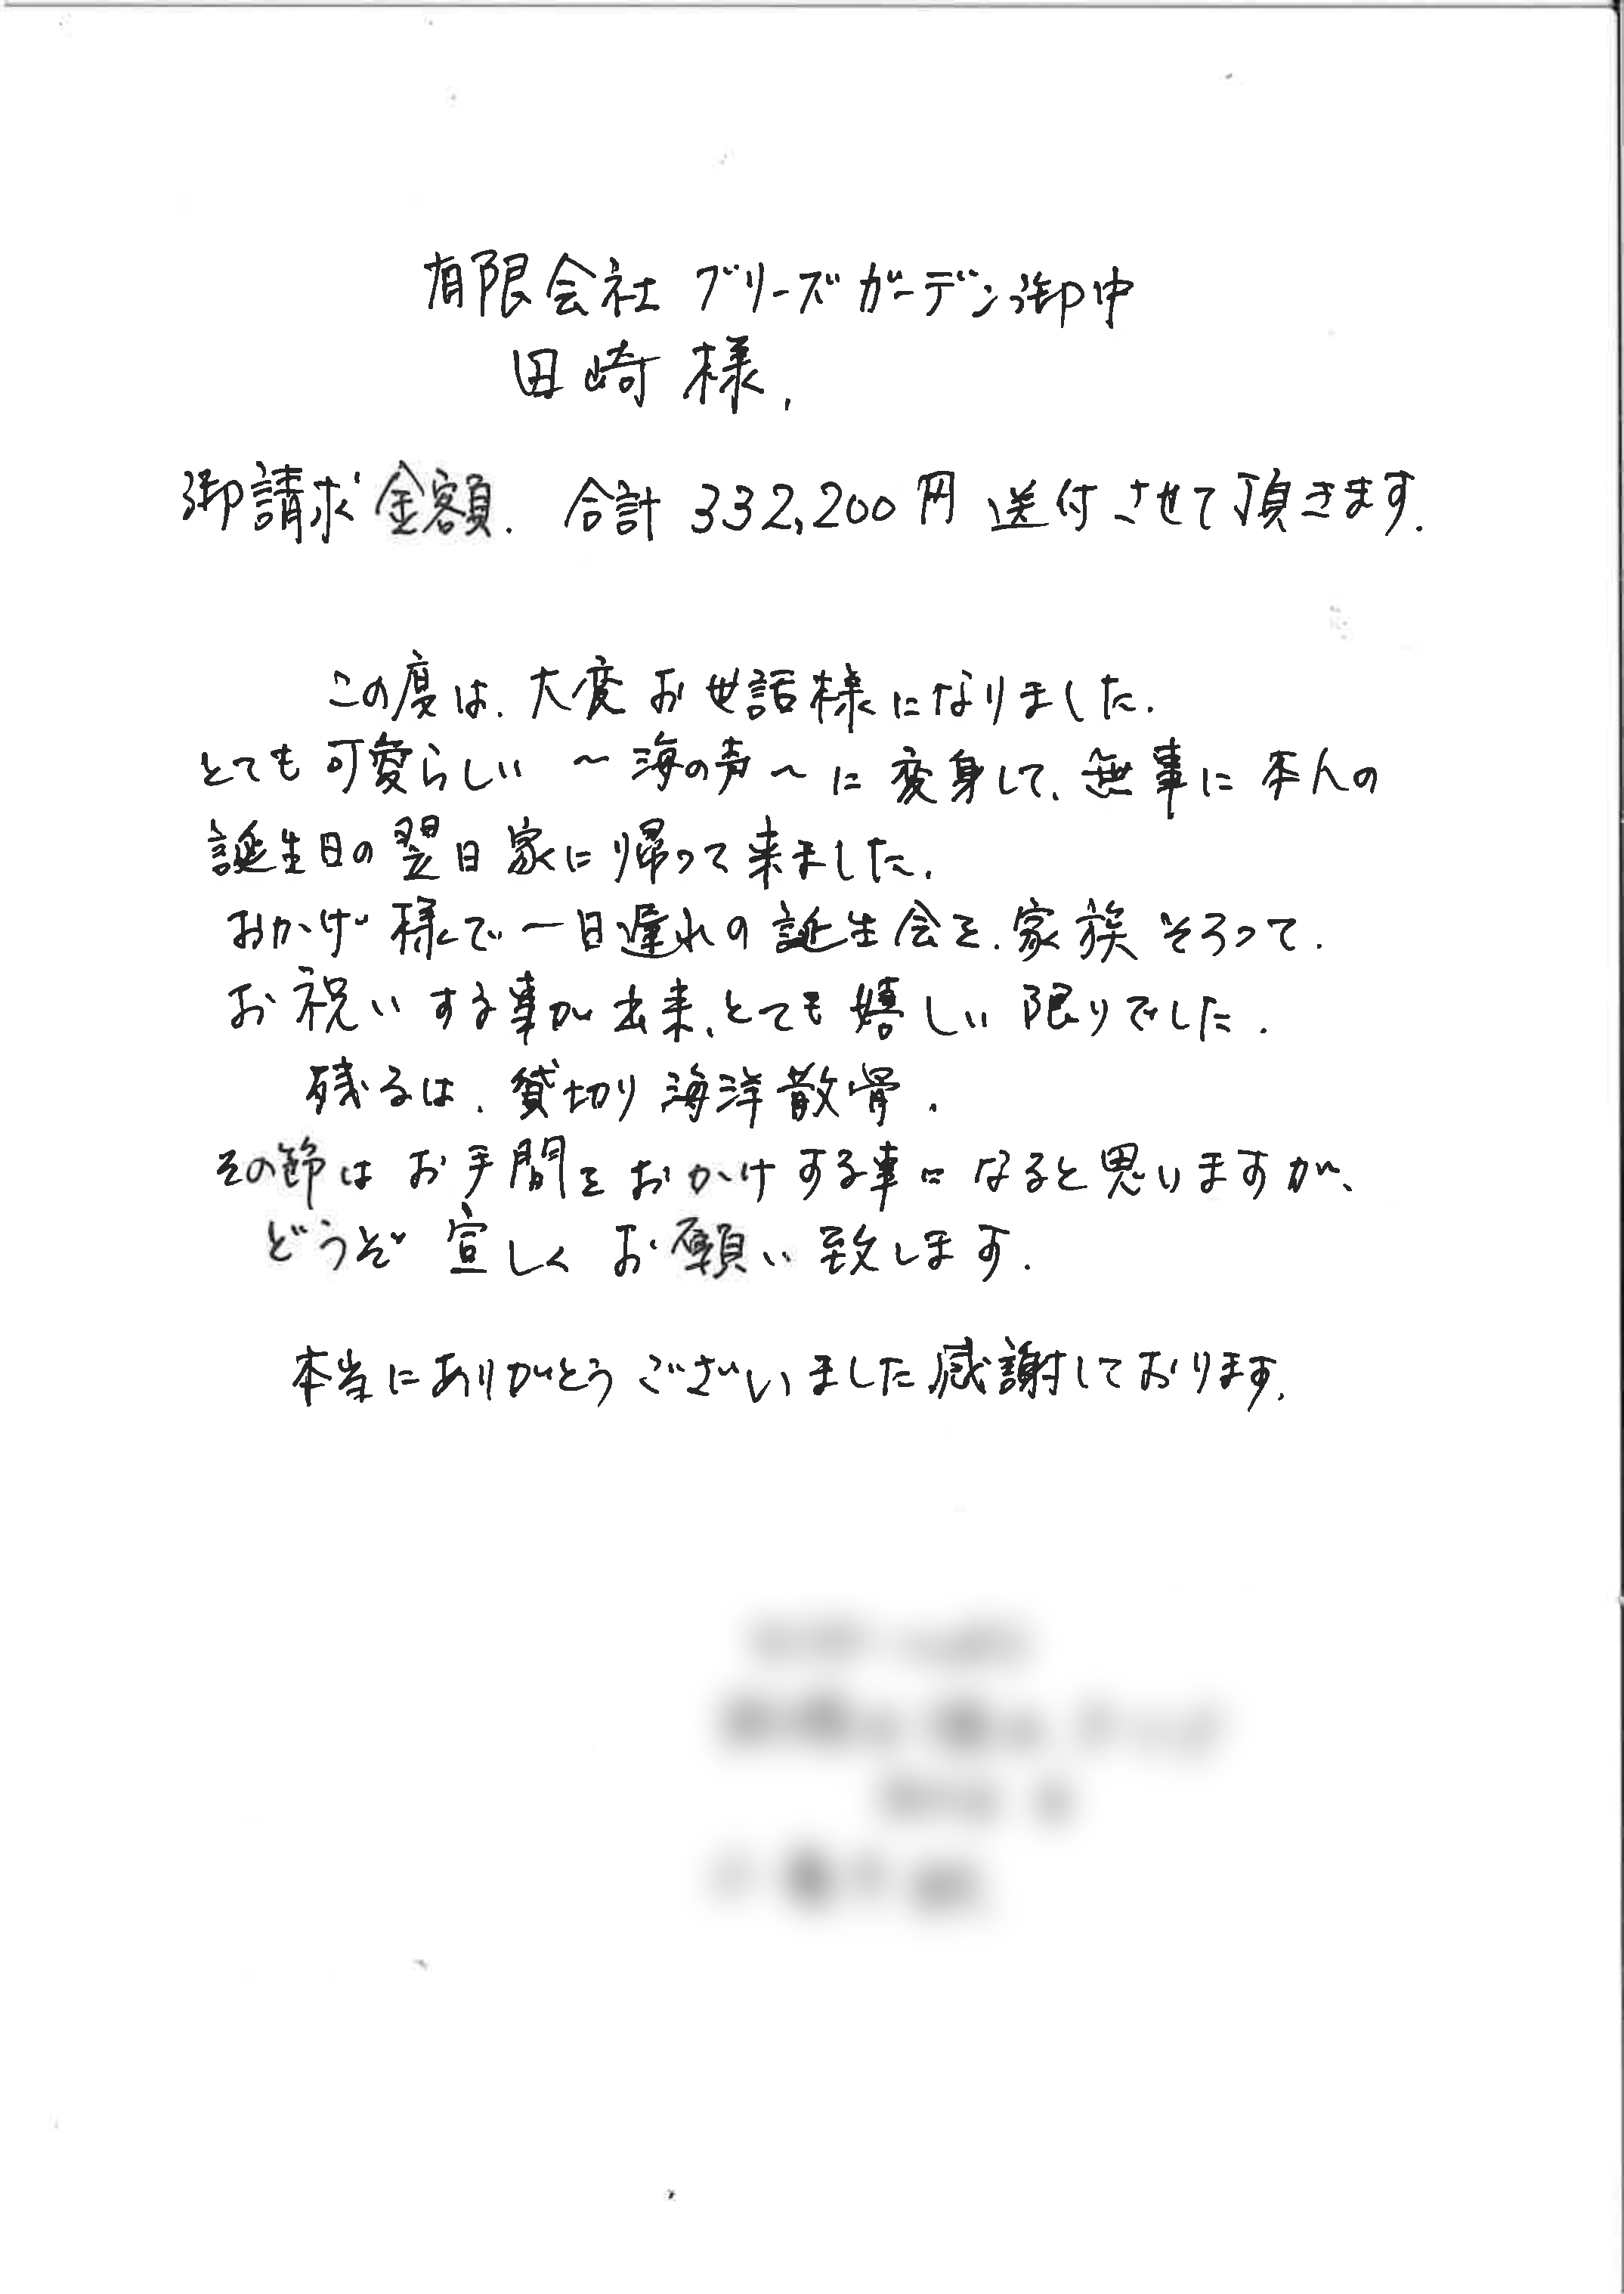 有限会社 ブリーズガーデン御中
田崎 様.
御請求金額. 合計 332,200円 送付させて頂きます.
この度は、大変お世話様になりました.
とても可愛らしい 〜海の声〜に変身して、無事に本人の
誕生日の翌日家に帰って来ました.
おかげ様で一日遅れの誕生会を、家族そろって.
お祝いする事が出来、とても嬉しい限りでした.
残るは、貸切り海洋散骨.
その節はお手間をおかけする事になると思いますが、
どうぞ宜しくお願い致します.
本当にありがとうございました感謝しております.